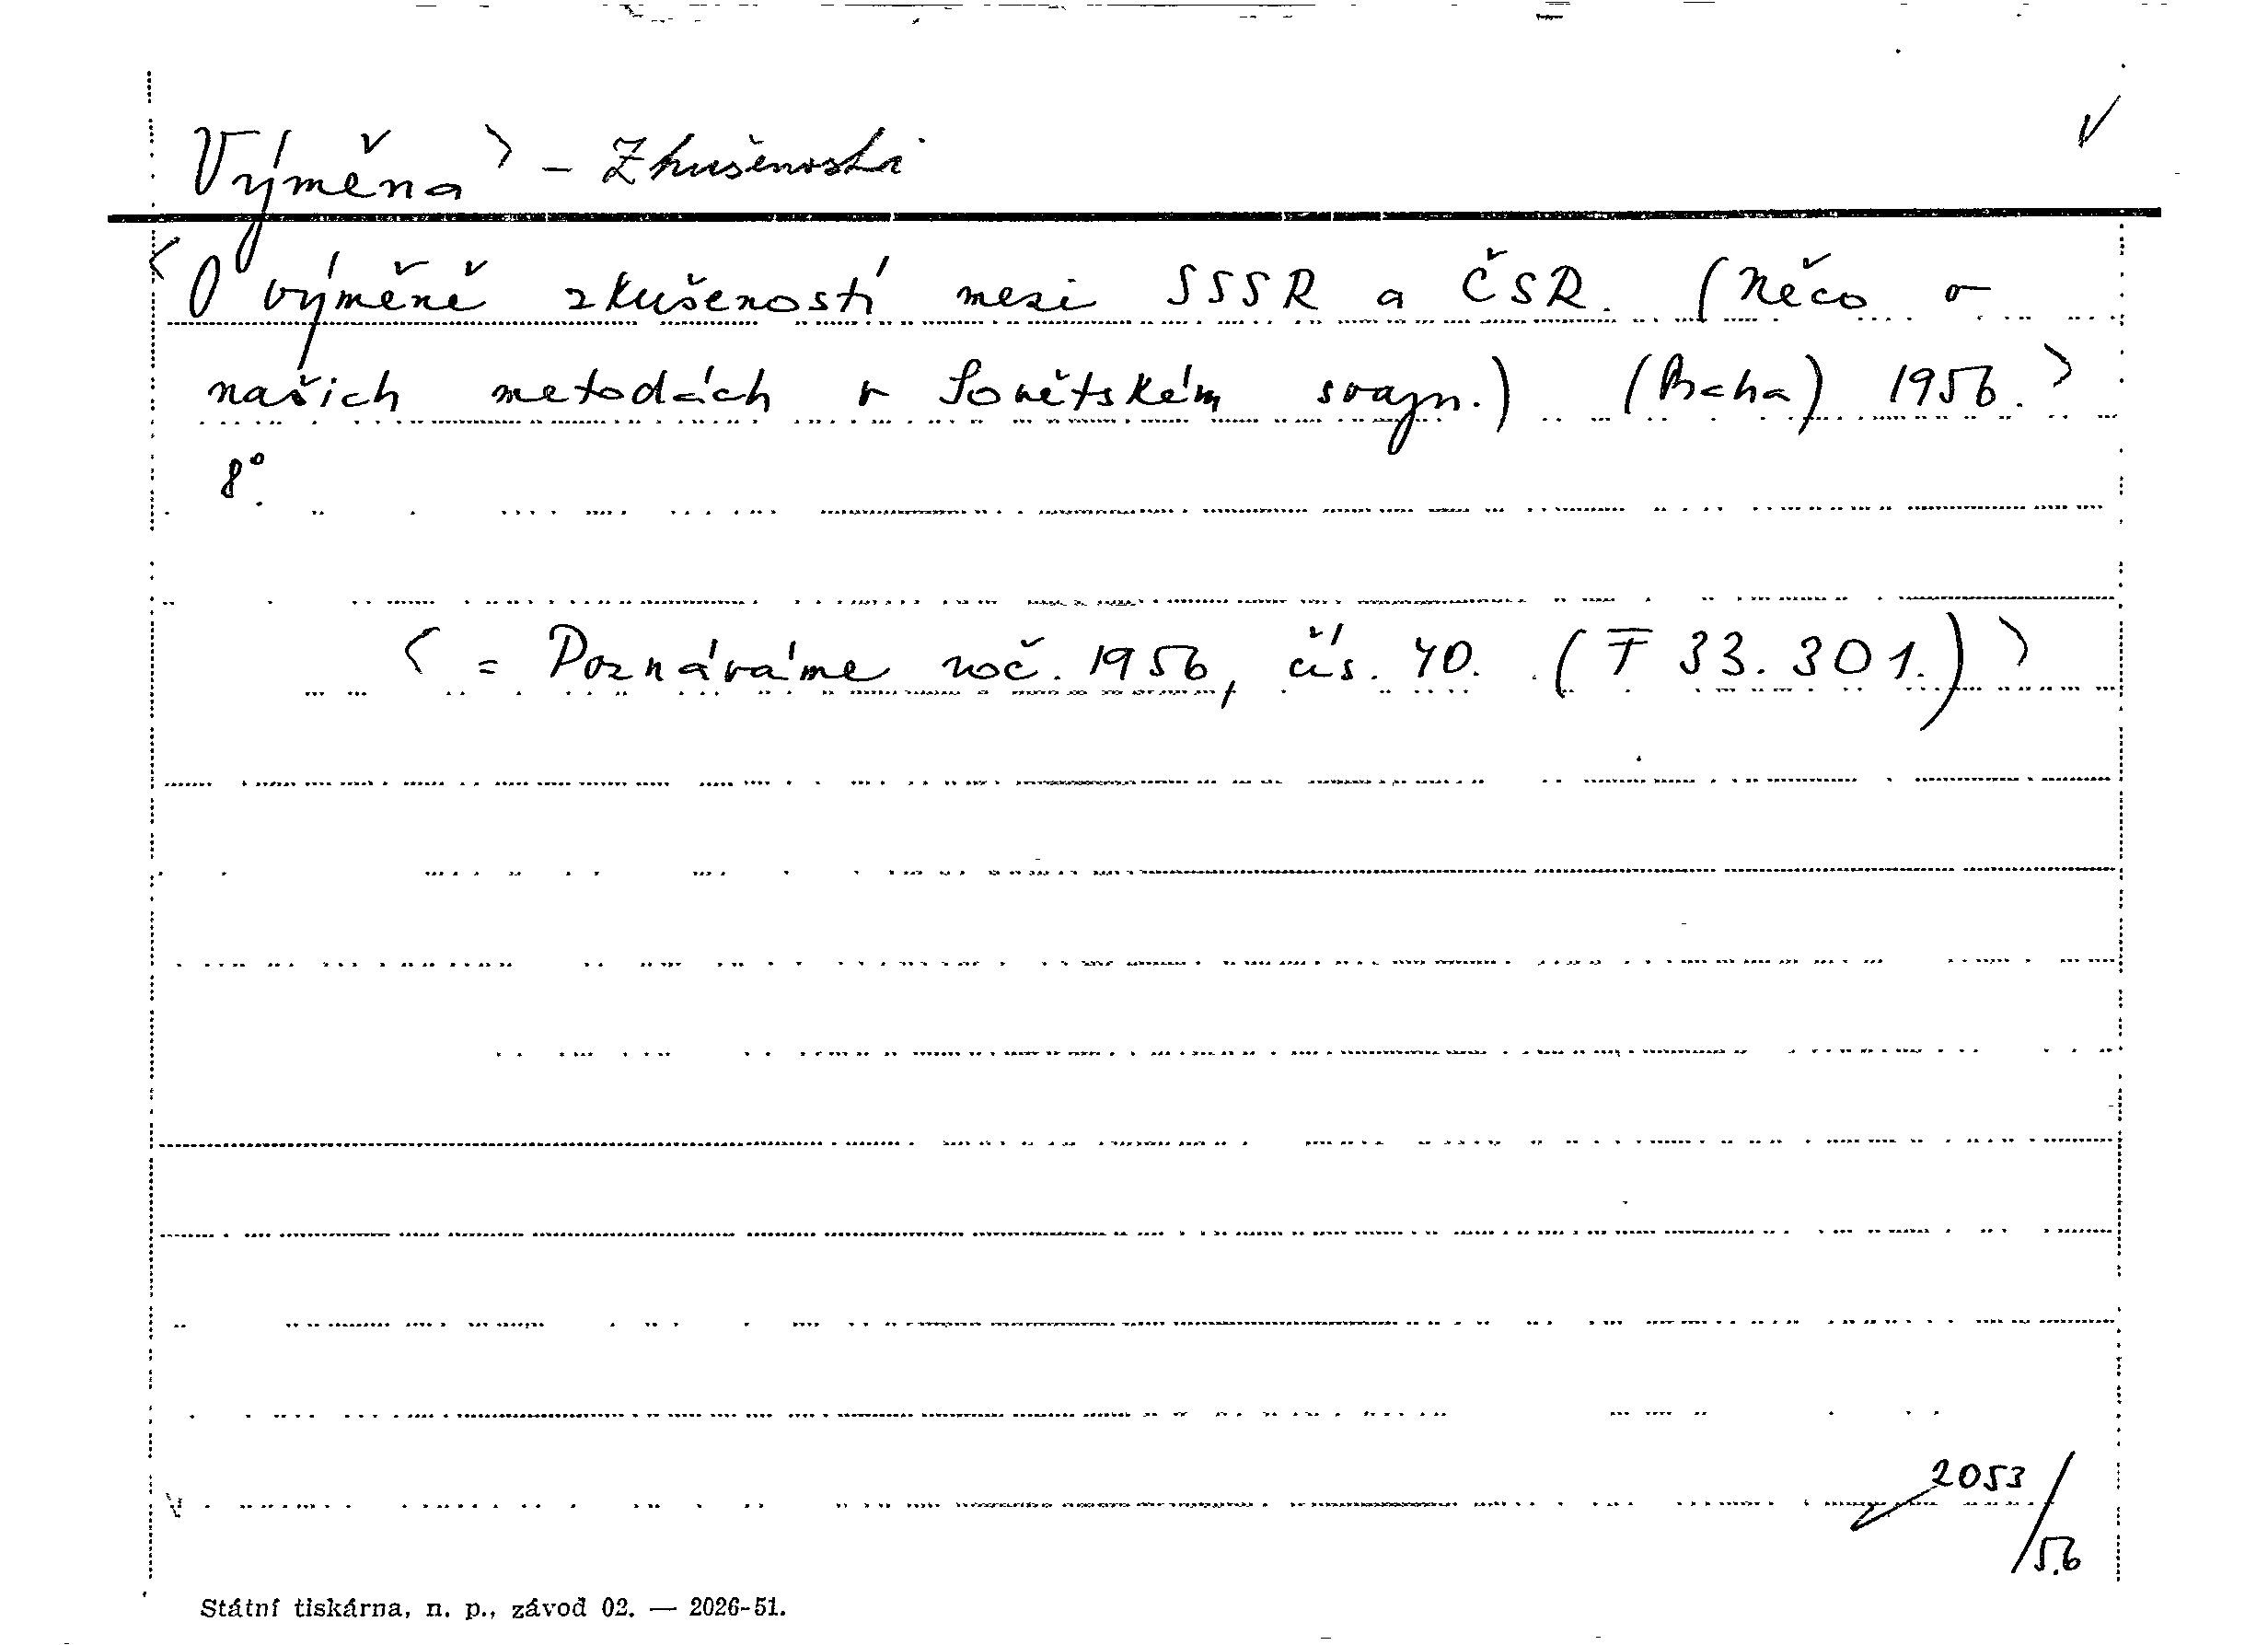 Výměna > - Zkušenosti
< O výměně zkušeností mezi SSSR a ČSR. (Něco o
našich metodách v Sovětském svazu.) (Praha) 1956. >
8°.
< = Poznáváme roč. 1956, čís. 40. (T 33.301.) >
2053/56
Státní tiskárna, n. p., závod 02. — 2026-51.